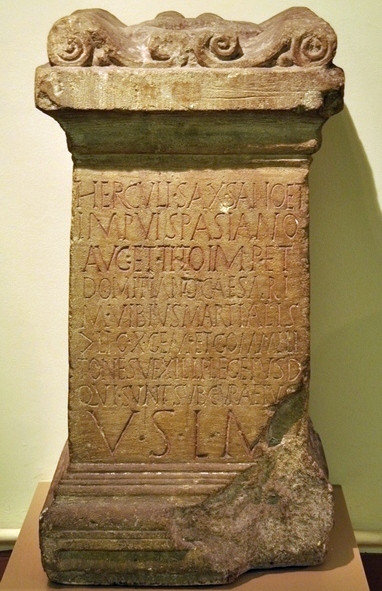 HERCVLI·SAXSANO ET
IMP VESPASIANO
AVG·ET·TITO IMP·ET
DOMITIANO CAESARI
M·VIBIVS MARTIALIS
> LEG·X·GEM·ET COMMILI
TONES VEXILLI LEG EIVSD
QVI·SVNT SVB CVRA EIVS
V·S·L·M